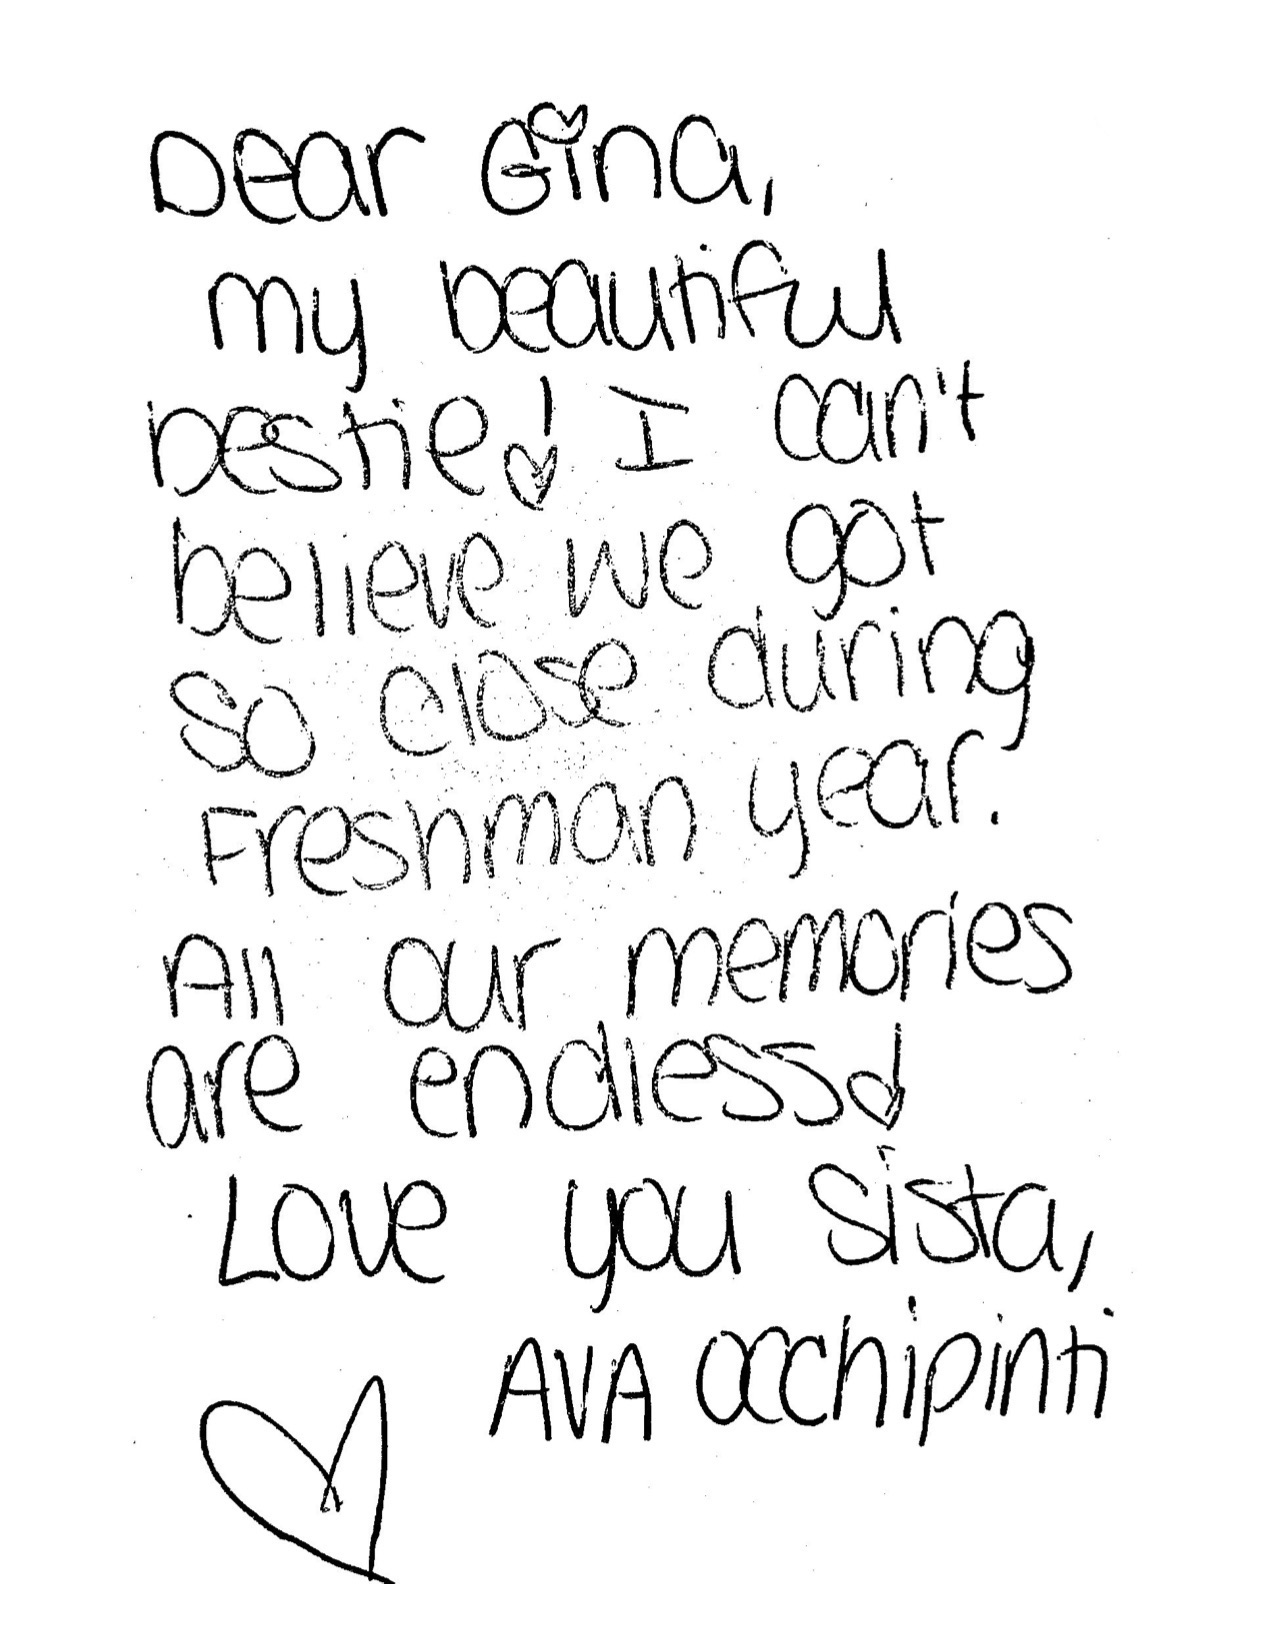 Dear Gina,
my beautiful
bestie! I can't
believe we got
so close during
Freshman year.
All our memories
are endless!
Love you sista,
AVA Occhipinti